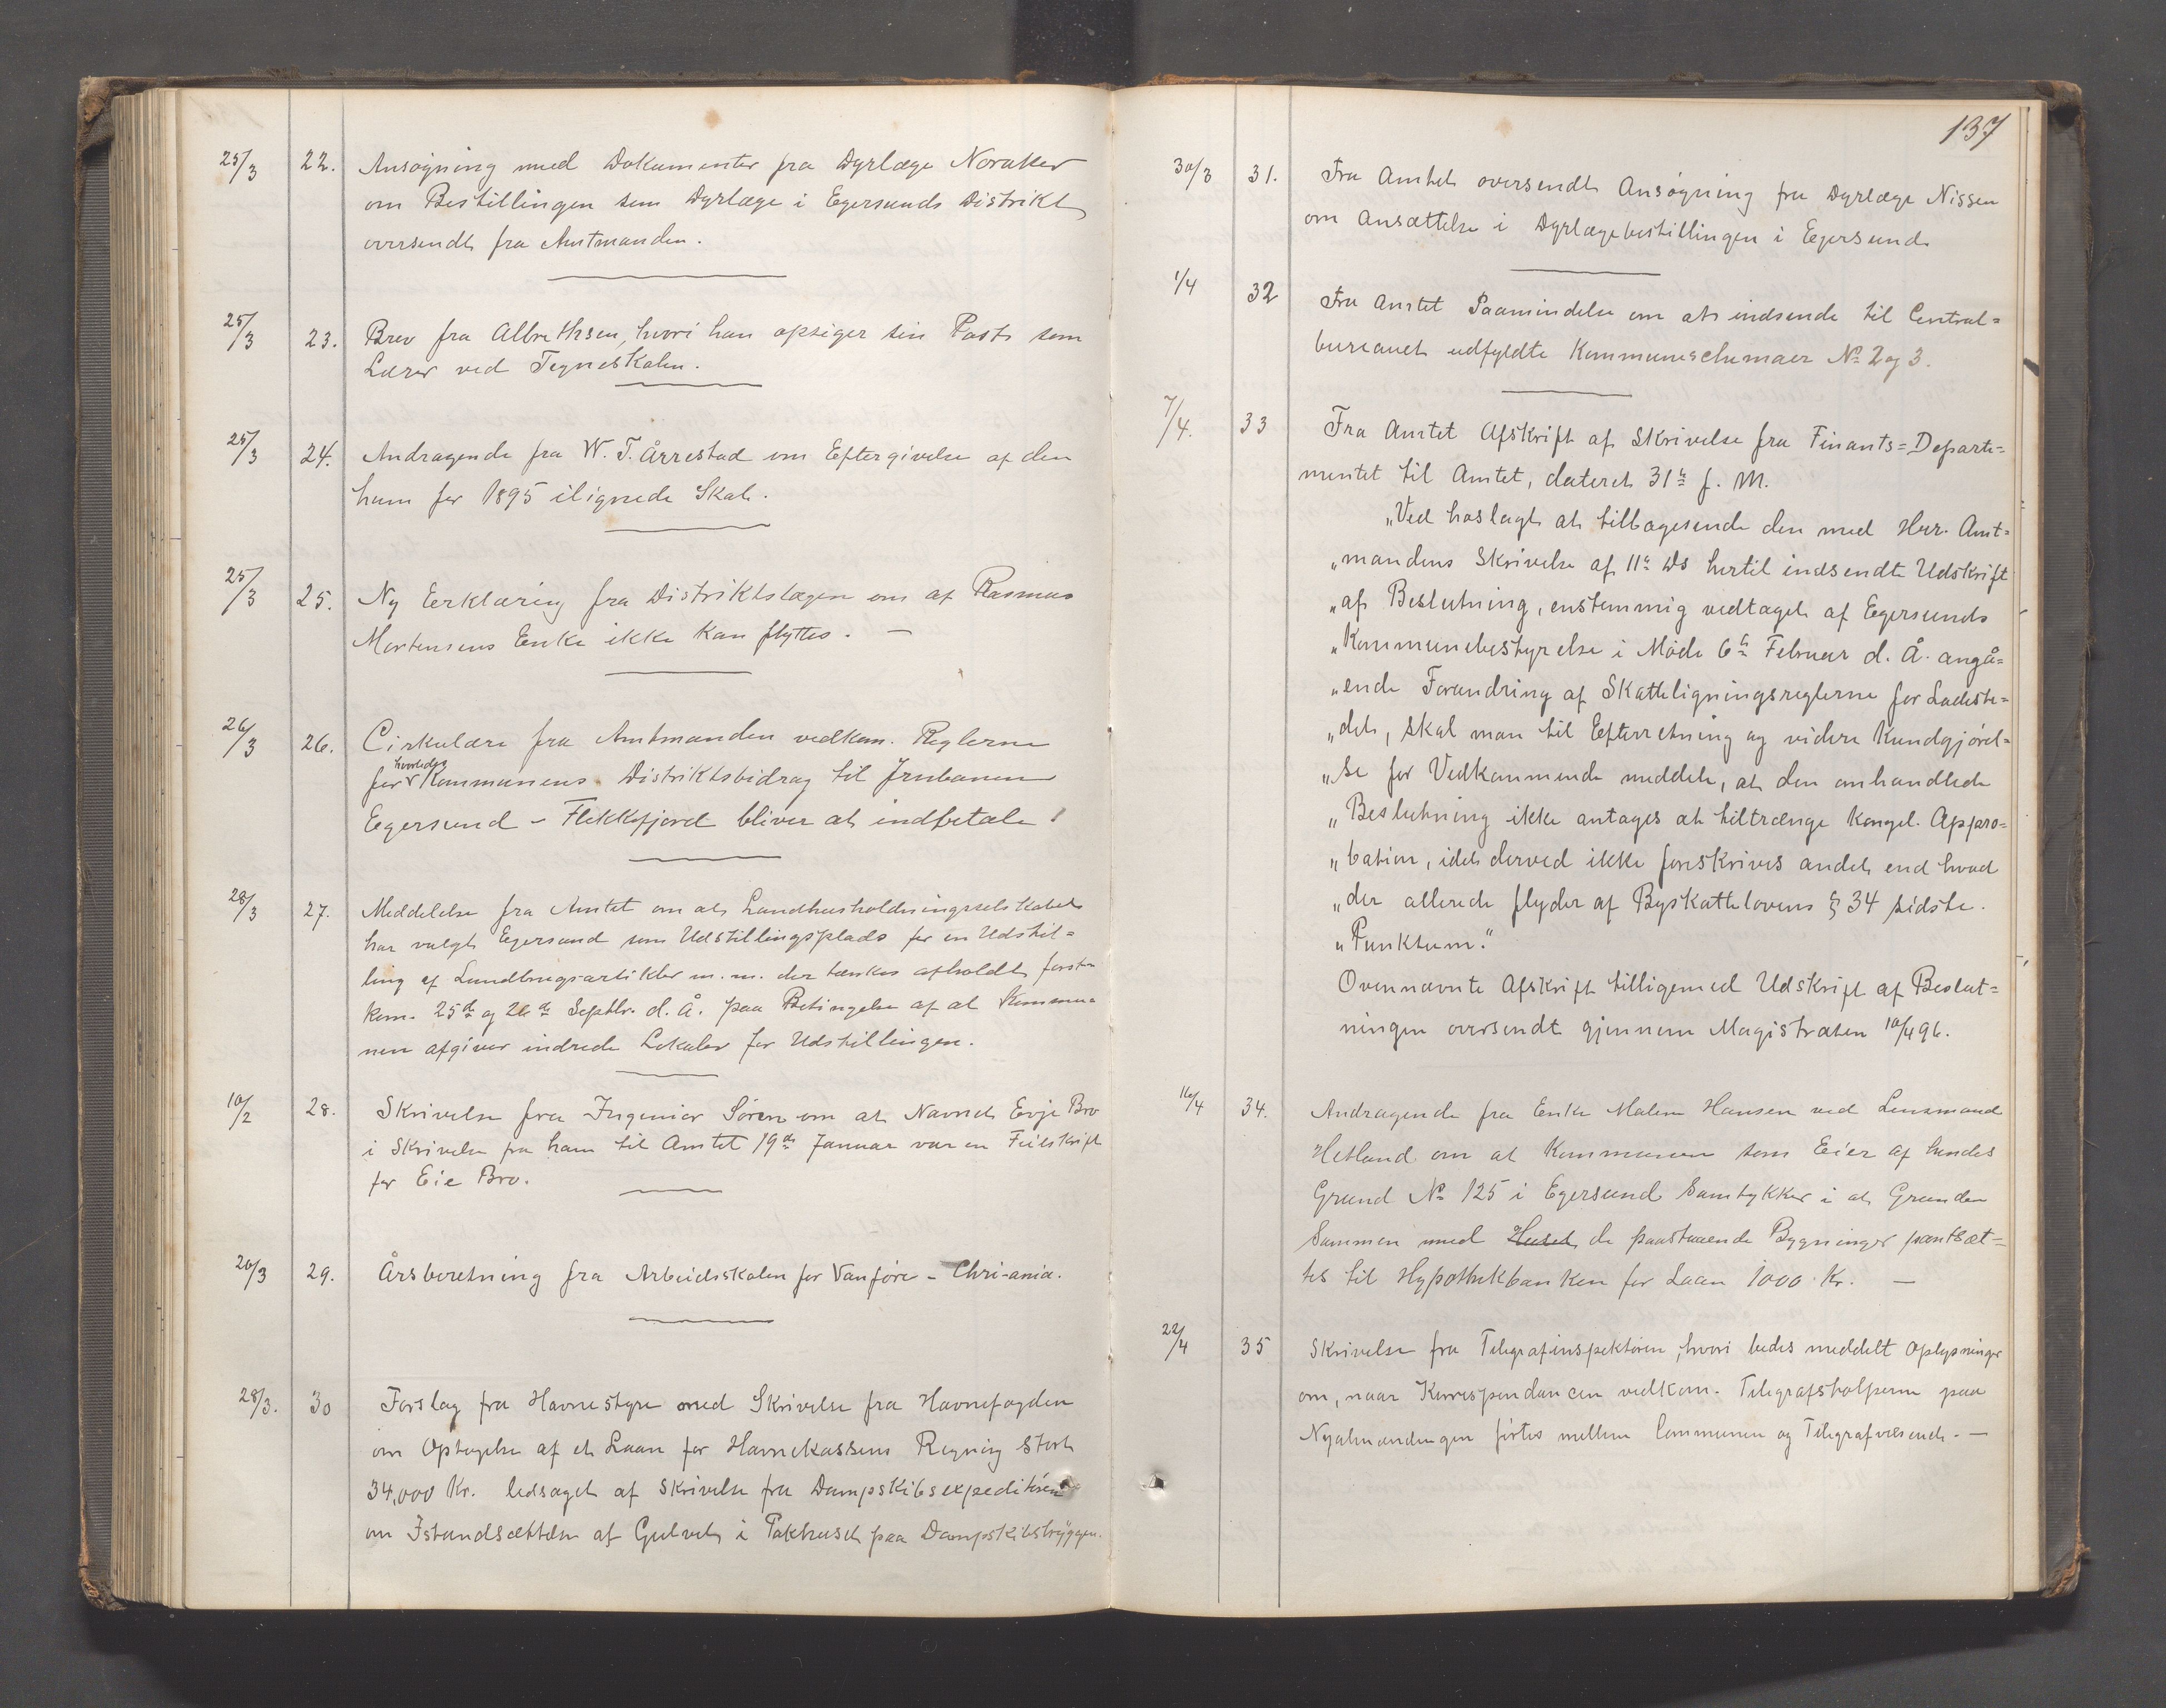 25/3 22. Ansøgning med Dokumenter fra Dyrlæge Noraker
om Bestillingen som Dyrlæge i Egersunds Distrikt
oversendt fra Amtmanden.
25/3 23. Brev fra Albrethsen, hvori han opsiger sin Post som
Lærer ved Tegneskolen.
25/3 24. Andragende fra W. T. Årrestad om Eftergivelse af den
ham for 1895 ilignede Skat.
25/3 25. Ny Eerklæring fra Distriktslægen om at Rasmus
Mortensens Enke ikke kan flyttes. —
26/3 26. Cirkulære fra Amtmanden vedkom. Reglerne
for hvorledes Kommunens Distriktsbidrag til Jrnbanen
Egersund - Flekkefjord bliver at indbetale
28/3 27. Meddelelse fra Amtet om at Landhusholdningsselskabet
har valgt Egersund som Udstillingsplads for en Udstil=
ling af Landbrugsartikler m. m. der tænkes afholdt først=
kom. 25de og 26de Septbr. d. Å. paa Betingelse af at Kommu=
nen afgiver indrede Lokaler for Udstillingen.
10/2 28. Skrivelse fra Ingeniør Sören om at Navnet Evje Bro
i Skrivelse fra ham til Amtet 19de Januar var en Feilskrift
for Eie Bro.
20/3 29. Årsberetning fra Arbeidsskolen for Vanføre - Chri-ania.
28/3. 30 Forslag fra Havnestyre med Skrivelse fra Havnefogden
om Optagelse af et Laan for Havnekassens Regning stort
34,000 Kr. ledsaget af Skrivelse fra Dampskibsexpeditören
om Istandsættelse af Gulvet i Pakhuset paa Dampskibsbryggen.
137
30/3 31. Fra Amtet oversendt Ansøgning fra Dyrlæge Nissen
om Ansættelse i Dyrlægebestillingen i Egersund
1/4 32 Fra Amtet Paamindelse om at indsende til Central=
bureauet udfyldte Kommuneschemaer No 2 og 3.
7/4. 33 Fra Amtet Afskrift af Skrivelse fra Finants=Departe=
mentet til Amtet, dateret 31te f. M.
"Ved hoslagt at tilbagesende den med Hrr. Amt=
"mandens Skrivelse af 11te ds hertil indsendte Udskrift
"af Beslutning, enstemmig vedtaget af Egersunds
"Kommunebestyrelse i Møde 6te Februar d. Å. angå=
"ende Forandring af Skatteligningsreglerne for Ladeste=
"det, skal man til Efterretning og videre Kundgjörel=
"se for Vedkommende meddele, at den omhandlede
"Beslutning ikke antages at tiltrænge Kongel. Appro=
"bation, idet derved ikke foreskrives andet end hvad
"der allerede flyder af Byskattelovens § 34 sidste.
"Punktum."
Ovennævnte Afskrift tilligemed Udskrift af Beslut=
ningen oversendt gjennem Magistraten 10/4 96.
16/4 34. Andragende fra Enke Malene Hansen ved Lensmand
Hetland om at Kommunen som Eier af hendes
Grund No 125 i Egersund Samtykker i at Grunden
Sammen med Huset de paastaaende Bygninger pantsæt=
tes til Hypothekbanken for Laan 1000 Kr. —
22/4 35 Skrivelse fra Telegrafinspektøren, hvori bedes meddelt Oplysninger
om, naar Korrespondancen vedkom. Telegrafstolperne paa
Nyalmendingen førtes mellem Communen og Telegrafvæsenet. —